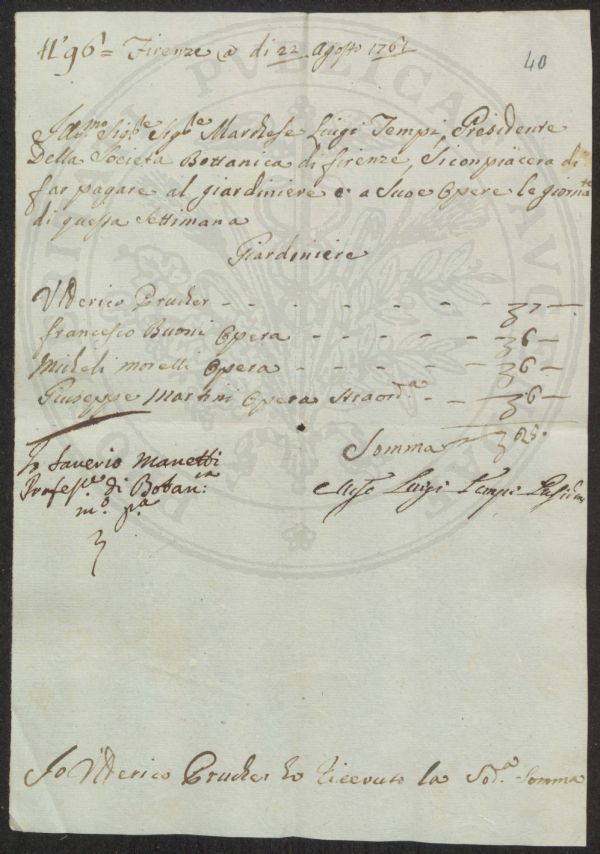 N° 96 = Firenze @ di 22 Agosto 1761
40
Ill.mo Sig.re Sig.re Marchese Luigi Tempi, Presidente
Della Societa Bottanica di firenze, Si conpiacera di
far pagare al giardiniere e a Sue Opere le giornate
di questa Settimana
Giardiniere
Ulderico Prucher - - - - - - - 37 —
francesco Buoni Opera - - - - - 36 —
Micheli morelli Opera - - - - - 36 —
Giuseppe Martini Opera Straord.a - - 36 —
Somma
Io Saverio Manetti
Profess.re di Botan.ca
m.o p.a
Luigi Tempi
Io Ulderico Prucher ho ricevuto la Sod.a Somma